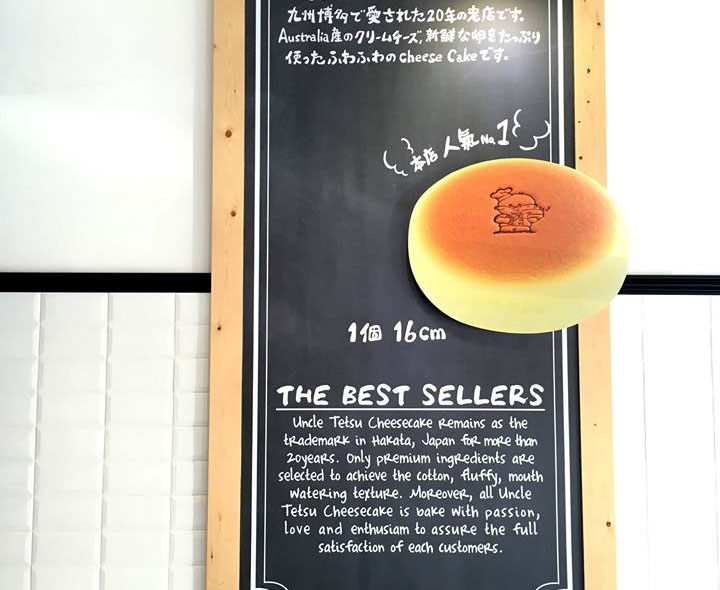 九州博多で愛された20年の老店です。
Australia産のクリームチーズ、新鮮な卵をたっぷり
使ったふわふわのcheese Cakeです。
本店人氣No.1
1個 16cm
THE BEST SELLERS
Uncle Tetsu Cheesecake remains as the
trademark in Hakata, Japan for more than
20years. Only premium ingredients are
selected to achieve the cotton, fluffy, mouth
watering texture. Moreover, all Uncle
Tetsu Cheesecake is bake with passion,
love and enthusiasm to assure the full
satisfaction of each customers.